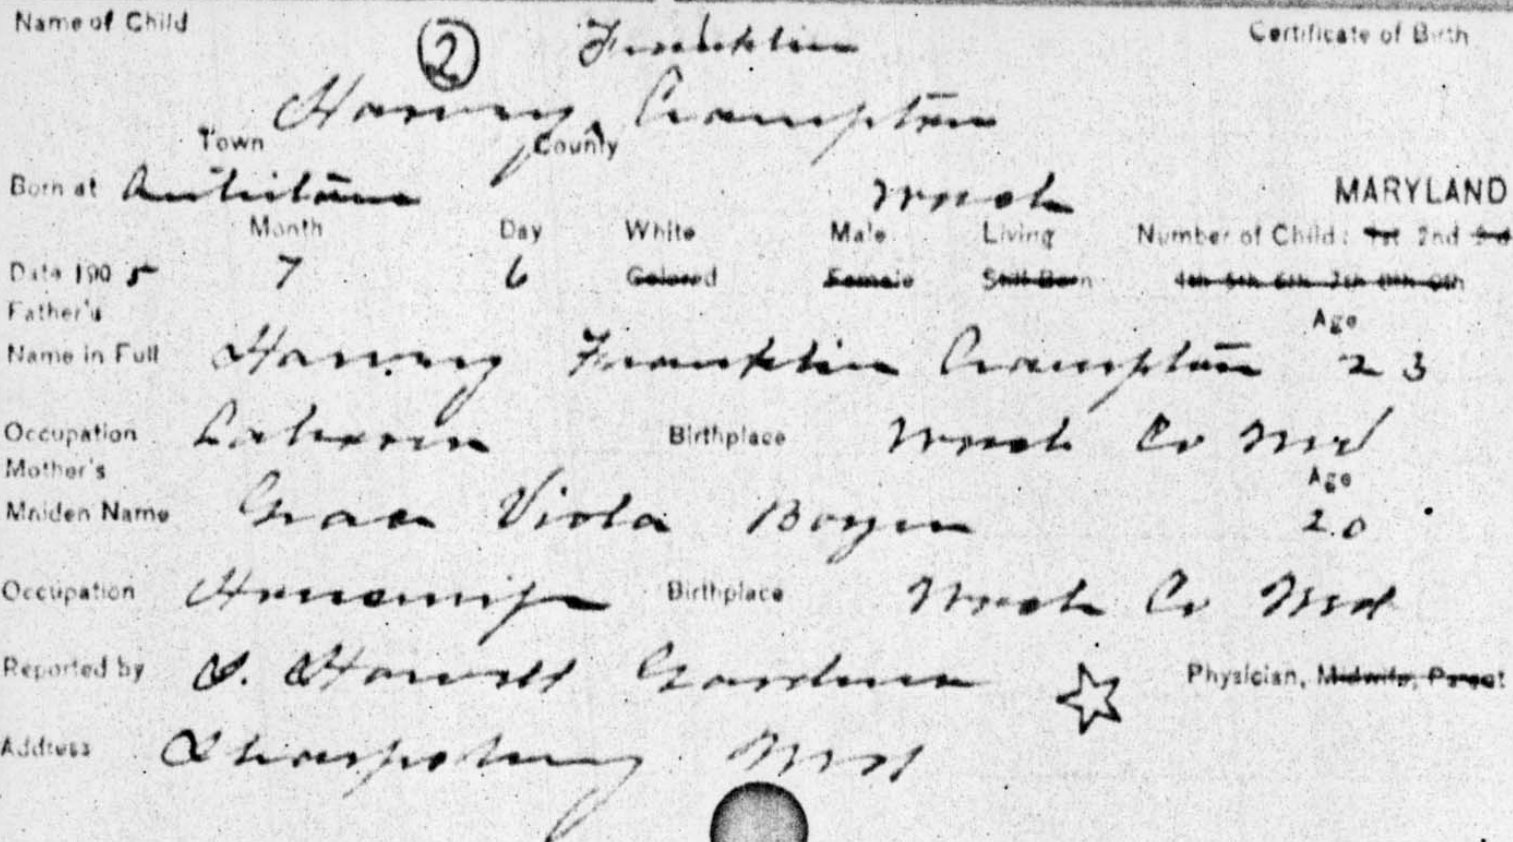 Name of Child ② Franklin Certificate of Birth
Harvey ^ Crampton
Town County
Born at Antietam Wash MARYLAND
Month Day White Male Living Number of Child: 1st 2nd 3d
Date 190 5 7 6 Colored Female Still Born 4th 5th 6th 7th 8th 9th
Father's Age
Name in Full Harvey Franklin Crampton 23
Occupation Laborer Birthplace Wash Co Md
Mother's Age
Maiden Name Grace Viola Boyer 20
Occupation Housewife Birthplace Wash Co Md
Reported by S. Howell Gardner Physician, Midwife, Parent
Address Sharpsburg Md